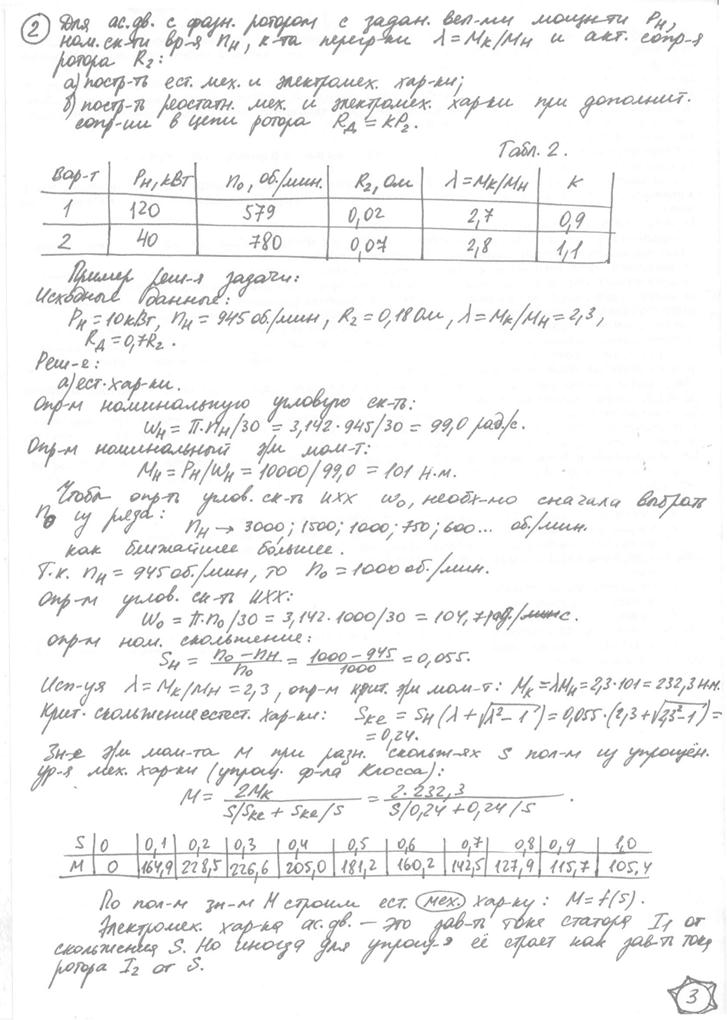 2 Для ас.дв. с фазн. ротором с задан. вел-ми мощн-ти Pн,
ном. ск-ти вр-я nн, к-та перегр-ки λ = Mк/Mн и акт. сопр-я
ротора R₂:
а) постр-ть ест. мех. и электромех. хар-ки;
б) постр-ть реостатн. мех. и электромех. хар-ки при дополнит.
сопр-ии в цепи ротора Rд = кР₂.
Табл. 2.
Вар-т Pн, кВт n₀, об./мин. R₂, Ом λ=Mк/Mн К
1 120 579 0,02 2,7 0,9
2 40 780 0,07 2,8 1,1
Пример реш-я задачи:
Исходные данные:
Pн = 10 кВт, nн = 945 об./мин, R₂ = 0,18 Ом, λ = Mк/Mн = 2,3,
Rд = 0,7R₂.
Реш-е:
а) ест. хар-ки.
Опр-м номинальную угловую ск-ть:
ωн = π·nн/30 = 3,142·945/30 = 99,0 рад/с.
Опр-м номинальный э/м мом-т:
Mн = Pн/ωн = 10000/99,0 = 101 Н.м.
Чтобы опр-ть углов. ск-ть ИХХ ω₀, необх-мо сначала выбрать
n₀ из ряда: nн → 3000; 1500; 1000; 750; 600... об/мин.
как ближайшее большее.
Т.к. nн = 945 об./мин, то n₀ = 1000 об./мин.
Опр-м углов. ск-ть ИХХ:
ω₀ = π·n₀/30 = 3,142·1000/30 = 104,7 рад/с.
опр-м ном. скольжение:
Sн = (n₀ − nн)/n₀ = (1000 − 945)/1000 = 0,055.
Исп-уя λ = Mк/Mн = 2,3, опр-м крит. э/м мом-т: Mк = λMн = 2,3·101 = 232,3 Н.м.
Крит. скольжение естест. хар-ки: Sке = Sн(λ + √λ² − 1) = 0,055·(2,3 + √2,3² − 1) =
= 0,24.
Зн-е э/м мом-та M при разн. скольж-ях S пол-м из упрощён.
ур-я мех. хар-ки (упрощ. ф-ла Клосса):
M = 2Mк/(S/Sке + Sке/S) = 2·232,3/(S/0,24 + 0,24/S).
S 0 0,1 0,2 0,3 0,4 0,5 0,6 0,7 0,8 0,9 1,0
M 0 164,9 228,5 226,6 205,0 181,2 160,2 142,5 127,9 115,7 105,4
По пол-м зн-м M строим ест. мех. хар-ку: M = f(S).
Электромех. хар-ка ас.дв. — это зав-ть тока статора I₁ от
скольжения S. Но иногда для упрощ-я её строят как зав-ть тока
ротора I₂ от S.
3